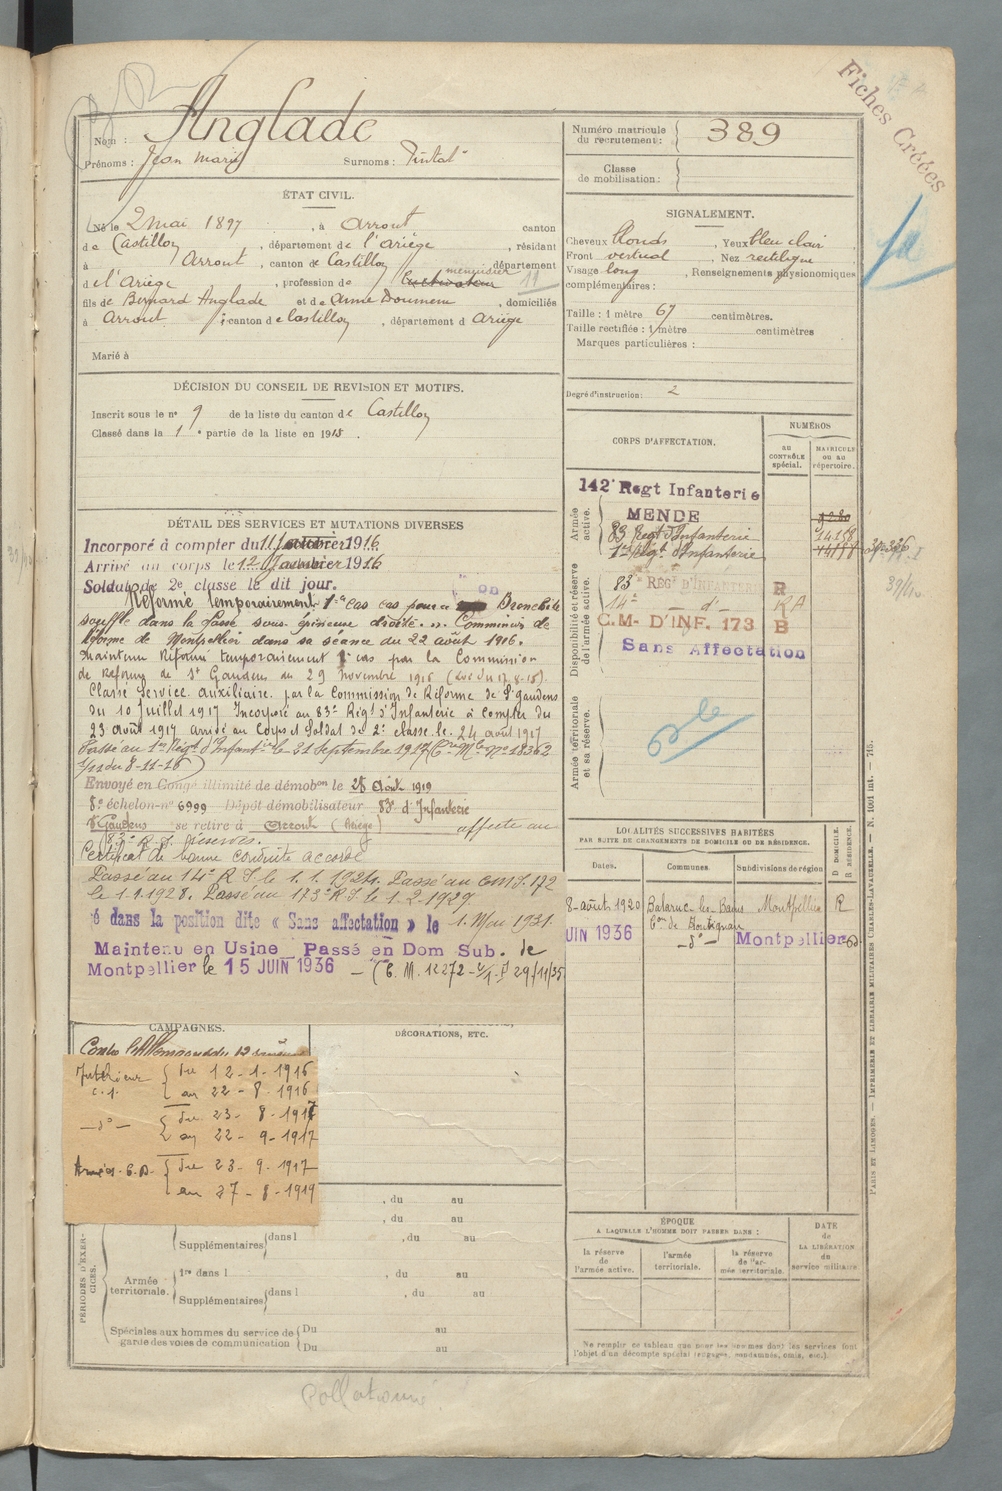 Fiches Créées
Nom : Anglade
Prénoms : Jean Marie Surnoms : Pintat
Numéro matricule du recrutement : 389
Classe de mobilisation :
ÉTAT CIVIL.
Né le 2 mai 1897, à Arrout canton
de Castillon, département de l'Ariège, résidant
à Arrout, canton de Castillon département
d e l'Ariège, profession de Cultivateur menuisier 11
fils de Bernard Anglade et de Anne Doumenc, domiciliés
à Arrout, canton de Castillon, département d Ariège
Marié à
SIGNALEMENT.
Cheveux blonds, Yeux bleu clair
Front vertical, Nez rectiligne
Visage long, Renseignements physionomiques
complémentaires :
Taille : 1 mètre 67 centimètres.
Taille rectifiée : 1 mètre centimètres
Marques particulières :
Degré d'instruction : 2
DÉCISION DU CONSEIL DE REVISION ET MOTIFS.
Inscrit sous le n° 9 de la liste du canton de Castillon
Classé dans la 1e partie de la liste en 1915.
DÉTAIL DES SERVICES ET MUTATIONS DIVERSES
Incorporé à compter du 11 Janvier 1916
Arrivé au corps le 12 Janvier 1916
Soldat de 2e classe le dit jour.
Réformé temporairement 1er cas pour Bronchite
souffle dans la fosse sous-épineuse droite. Commission de
réforme de Montpellier dans sa séance du 22 août 1916.
Maintenu Réformé temporairement 1er cas par la Commission
de Réforme de St Gaudens du 29 Novembre 1916
Classé Service auxiliaire par la Commission de Réforme de St Gaudens
du 10 juillet 1917 Incorporé au 83e Régt d'Infanterie à compter du
23 août 1917 arrivé au Corps et Soldat de 2e classe le 24 août 1917
Passé au 1er Régt d'Infantie le 21 Septembre 1917 (Cre Mle No 18362
1/11 du 8-11-16)
Envoyé en Congé illimité de démobon le 28 Août 1919
8e échelon - n° 6999 Dépôt démobilisateur 83e d'Infanterie
St Gaudens se retire à Arrout (Ariège) affecté au
83e R.I. réserves.
Certificat de bonne conduite accordé
Passé au 14e R.I. le 1.1.1924. Passé au CMI. 172
le 1.1.1928. Passé au 173e R.I. le 1.2.1929
é dans la position dite « Sans affectation » le 1. Mai 1931
Maintenu en Usine Passé en Dom Sub. de
Montpellier le 15 JUIN 1936 - (C.M. 12272 - 29/11/35
CORPS D'AFFECTATION.
NUMÉROS
au CONTRÔLE spécial.
MATRICULE OU AU répertoire.
Armée active.
142e Regt Infanterie
MENDE
83 Regt d'Infanterie 14158
1er Régt d'Infanterie
Disponibilité et réserve de l'armée active.
83e REGt D'INFANTERIE R
14e - d° - RA
C.M. D'INF. 173 B
Sans Affectation
Armée territoriale et sa réserve.
LOCALITÉS SUCCESSIVES HABITÉES
PAR SUITE DE CHANGEMENTS DE DOMICILE OU DE RÉSIDENCE.
Dates. Communes. Subdivisions de région D. DOMICILE. R. RÉSIDENCE.
8 août 1920 Balaruc-les-Bains Montpellier R
Con de Frontignan
UIN 1936 - d° - Montpellier
CAMPAGNES.
DÉCORATIONS, ETC.
Intérieur du 12-1-1916
C.S. au 22-8-1916
- d° - du 23-8-1917
au 22-9-1917
Armées C.D. du 23-9-1917
au 27-8-1919
PÉRIODES D'EXERCICES.
, du au
, du au
Supplémentaires dans l , du au
Armée territoriale. 1re dans l , du au
Supplémentaires dans l , du au
Spéciales aux hommes du service de garde des voies de communication Du au
Du au
ÉPOQUE
A LAQUELLE L'HOMME DOIT PASSER DANS :
la réserve de l'armée active.
l'armée territoriale.
la réserve de l'armée territoriale.
DATE de LA LIBÉRATION du service militaire.
Ne remplir ce tableau que pour les hommes dont les services font
l'objet d'un décompte spécial (engagés, condamnés, omis, etc.).
PARIS ET LIMOGES. — IMPRIMERIE ET LIBRAIRIE MILITAIRES CHARLES-LAVAUZELLE. — N. 1001 int. — 715.
Collationné